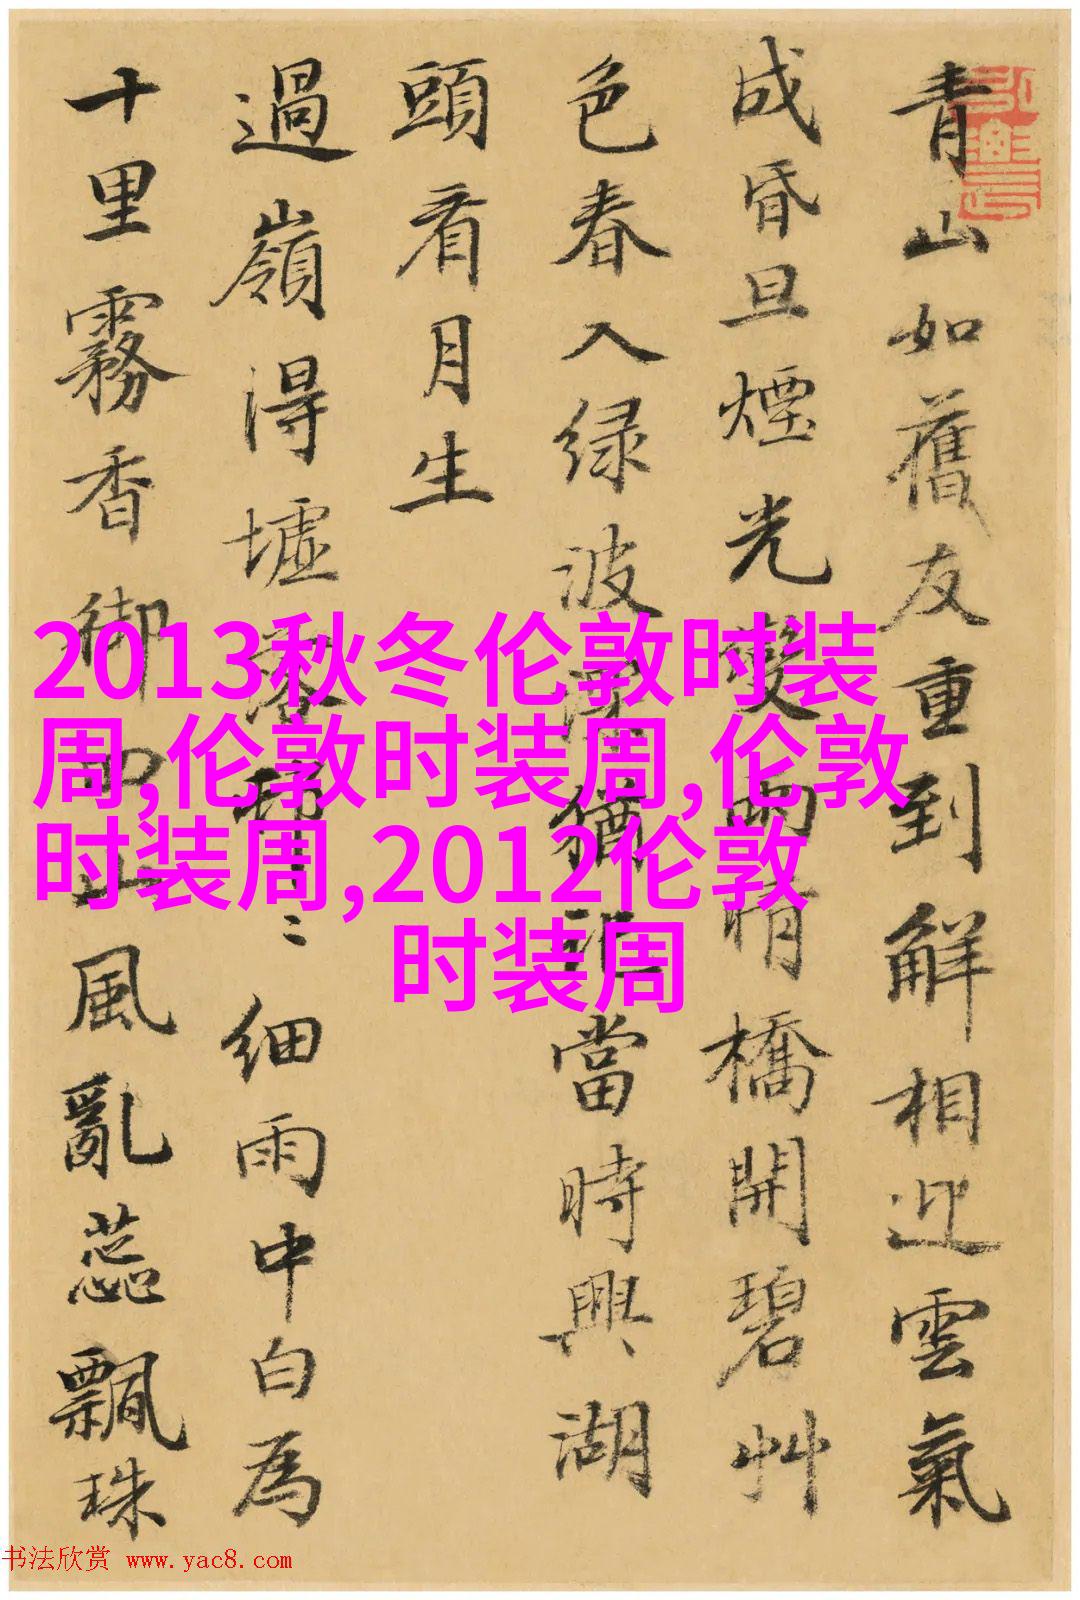 青山如舊友重到解相迎雲氣
成昏旦煙光變雨晴橋開碧艸
色春入绿波猶記當時興湖
頭看月生
過嶺得墟落細雨中白為
十里霧香御四山風亂蕊飄珠
2013秋冬伦敦时装
周,伦敦时装周,伦敦
时装周,2012伦敦
时装周
书法欣赏 www.yac8.com